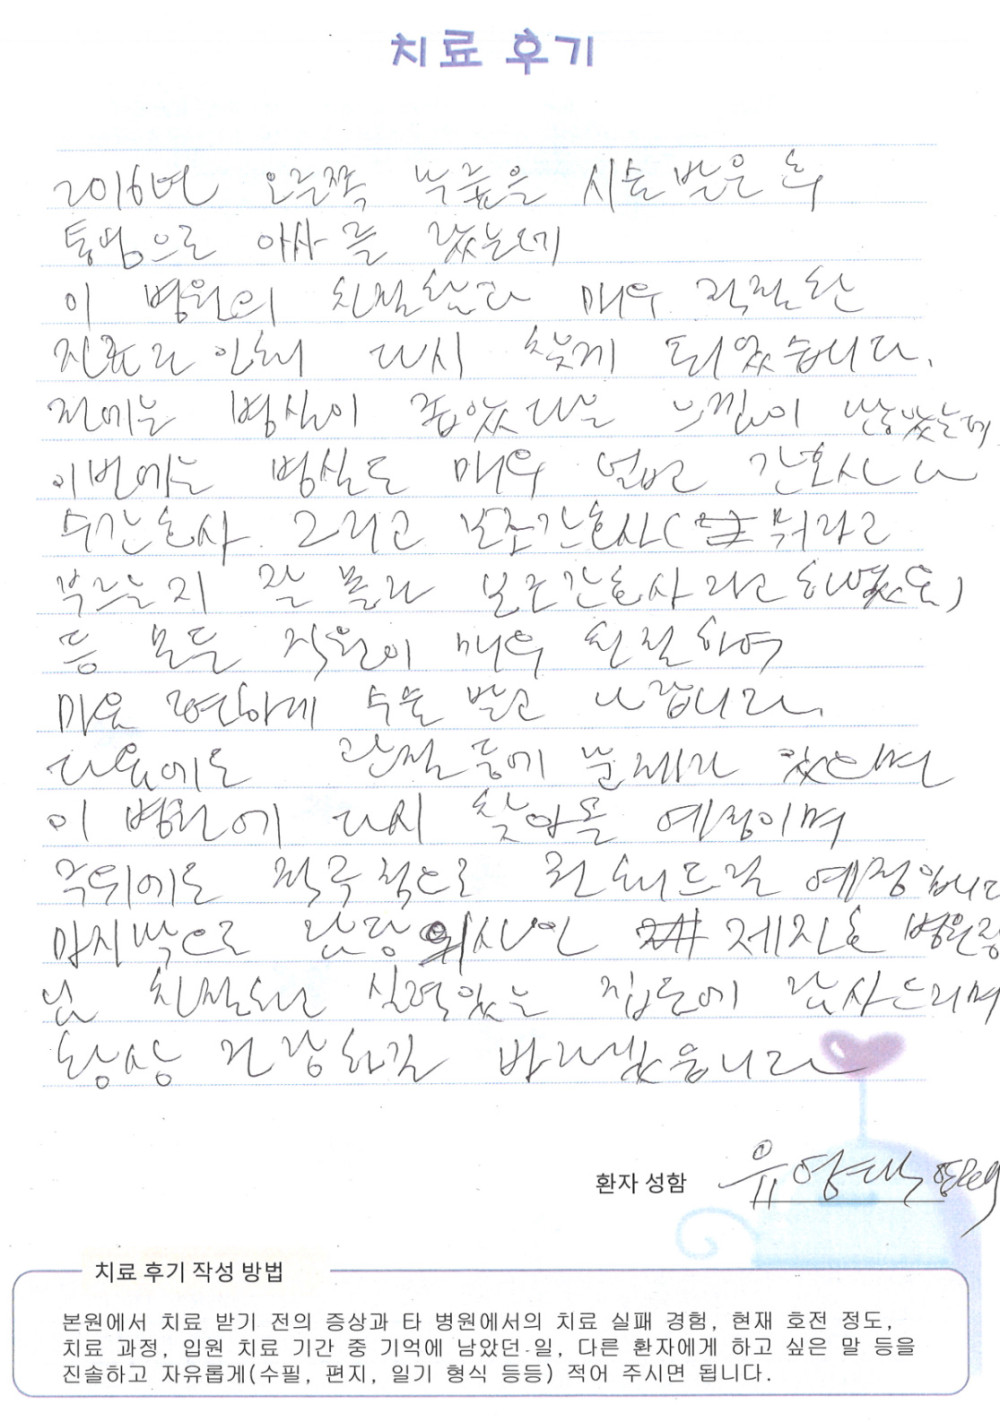 치료 후기
2016년 오른쪽 무릎을 시술받은 후
통영으로 이사를 갔는데
이 병원의 친절함과 매우 적절한
진료로 인해 다시 찾게 되었습니다.
전에는 병실이 좁았다는 느낌이 남았는데
이번에는 병실도 매우 넓고 간호사나
수간호사. 그리고 보조간호사( 뭐라고
부르는지 잘 몰라 보조간호사라고 하였음)
등 모든 직원이 매우 친절하여
마음 편하게 수술 받고 나갑니다.
다음에도 관절 등에 문제가 있으면
이 병원에 다시 찾아올 예정이며
주위에도 적극적으로 권해드릴 예정입니다
마지막으로 담당 의사인 제진호 병원장
님 친절하고 실력있는 집도에 감사드리며
항상 건강하길 바라겠습니다
환자 성함 유영택
치료 후기 작성 방법
본원에서 치료 받기 전의 증상과 타 병원에서의 치료 실패 경험, 현재 호전 정도,
치료 과정, 입원 치료 기간 중 기억에 남았던 일, 다른 환자에게 하고 싶은 말 등을
진솔하고 자유롭게(수필, 편지, 일기 형식 등등) 적어 주시면 됩니다.